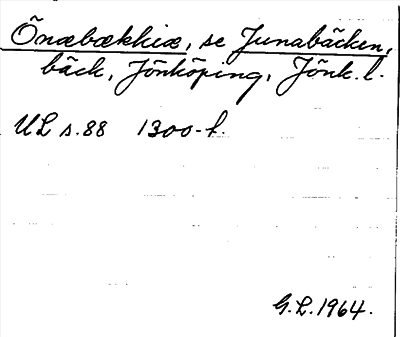 Õnæbækkiæ, se Junabäcken,
bäck, Jönköping, Jönk. l.
UL s. 88 1300-t.
G.L. 1964.